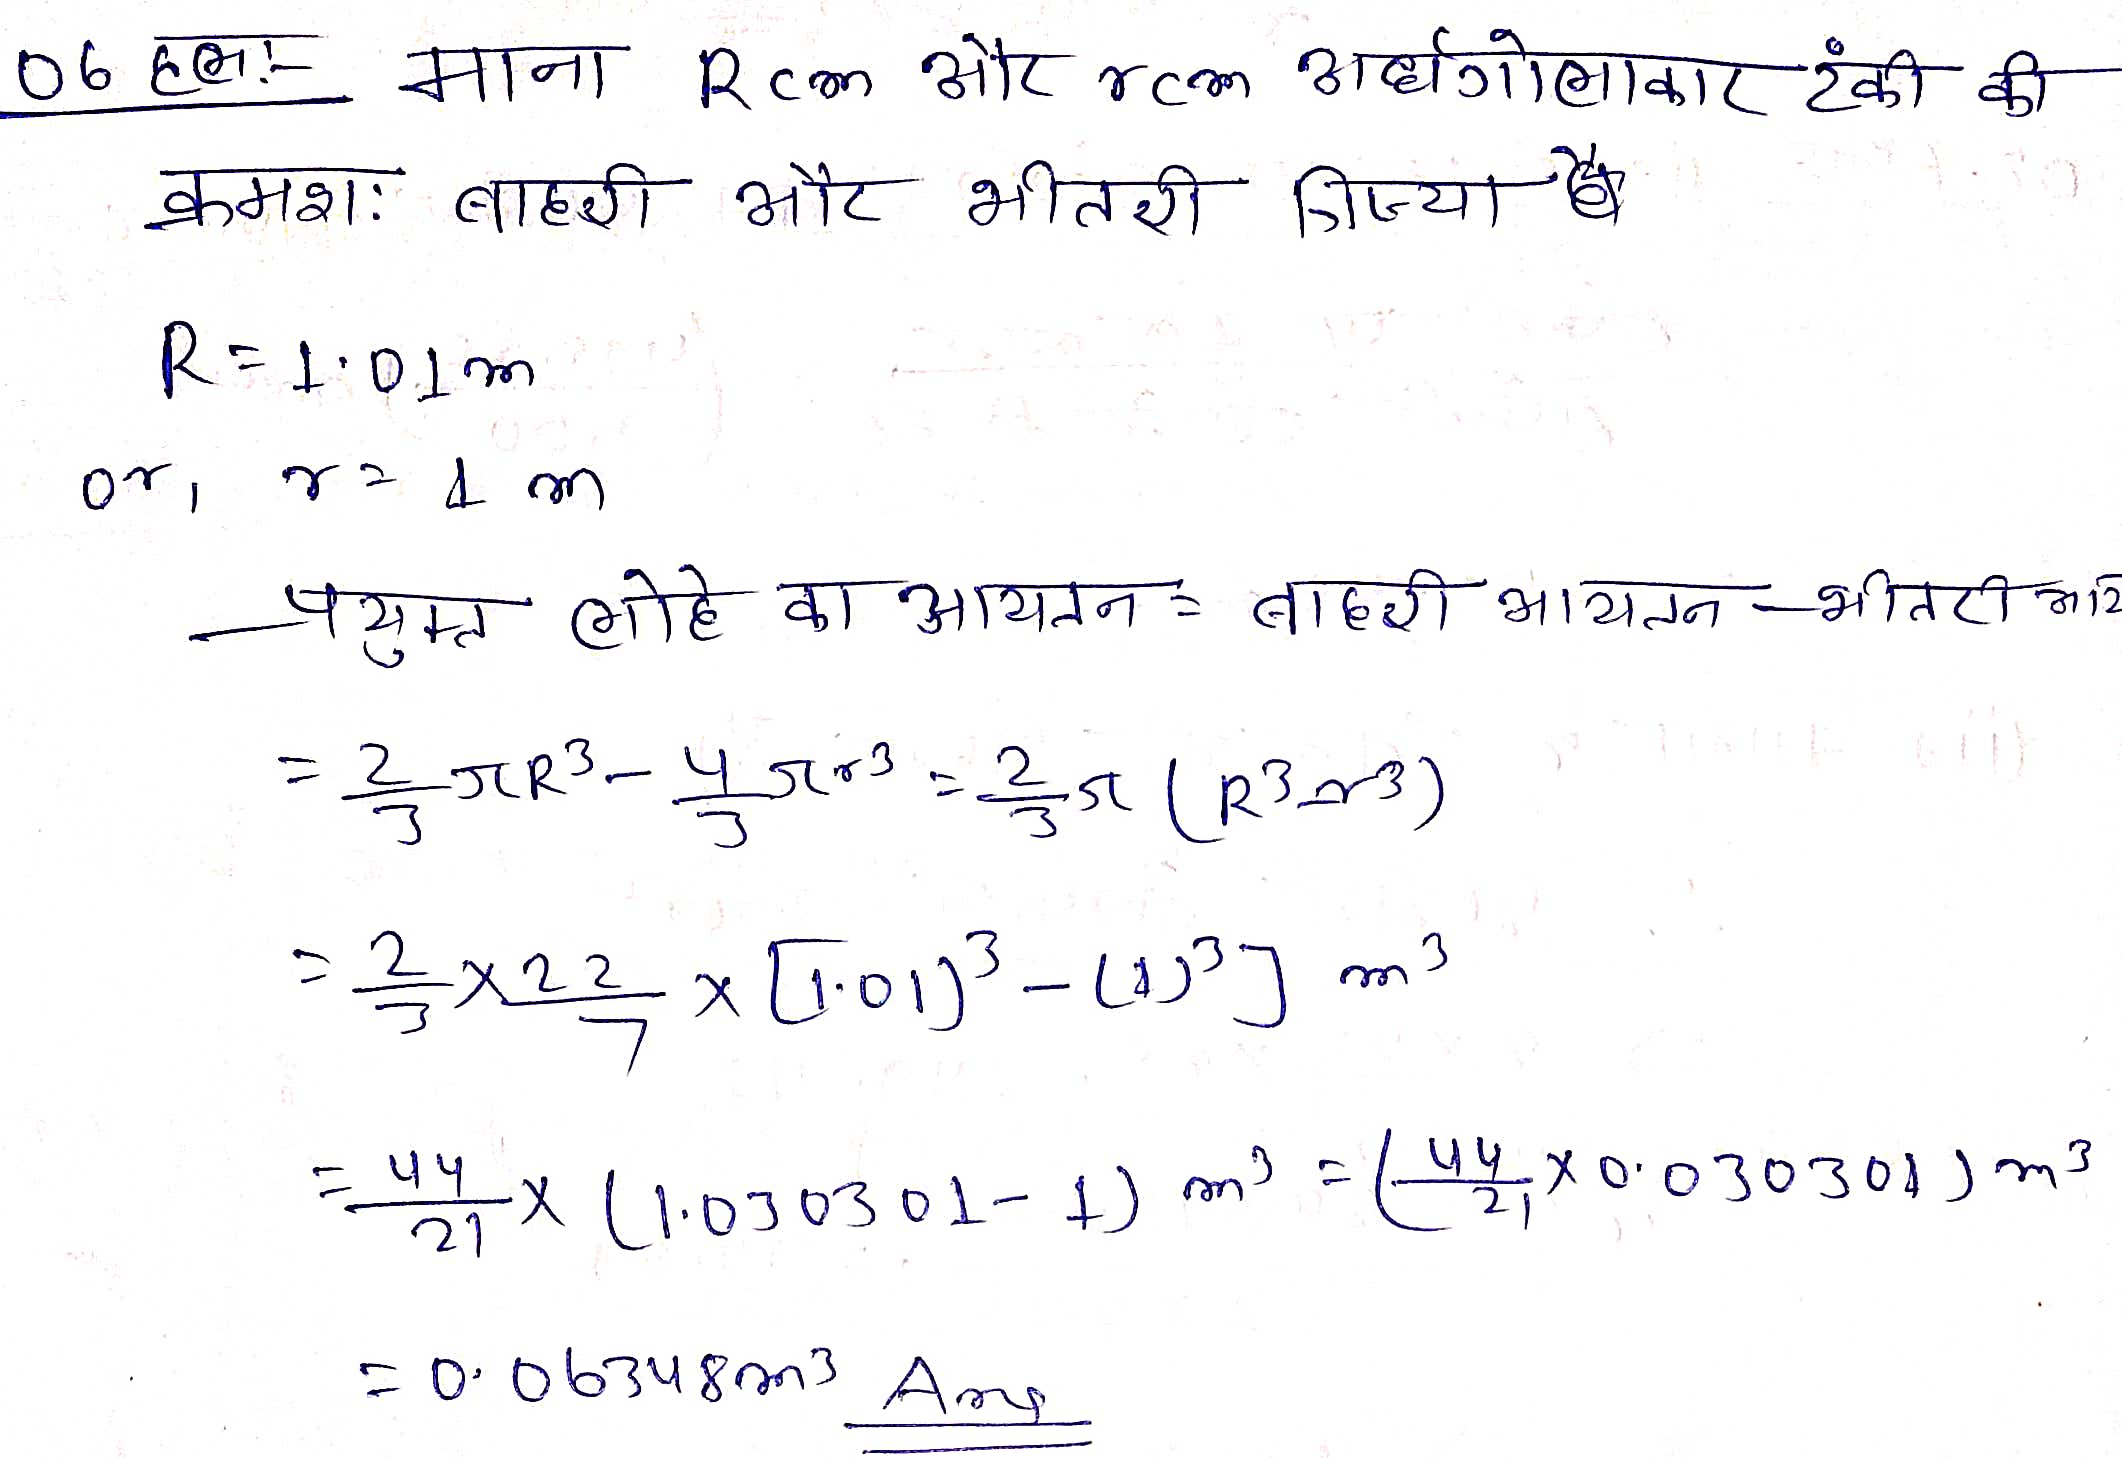 06 हल:- माना R cm और r cm अर्धगोलाकार टंकी की
क्रमश: बाहरी और भीतरी त्रिज्या है
R = 1.01 m
or, r = 1 m
प्रयुक्त लोहे का आयतन = बाहरी आयतन - भीतरी आय
= 2/3 πR³ - 4/3 πr³ = 2/3 π (R³ - r³)
= 2/3 × 22/7 × [1.01)³ - (1)³] m³
= 44/21 × (1.030301 - 1) m³ = (44/21 × 0.030301) m³
= 0.06348 m³ Ans